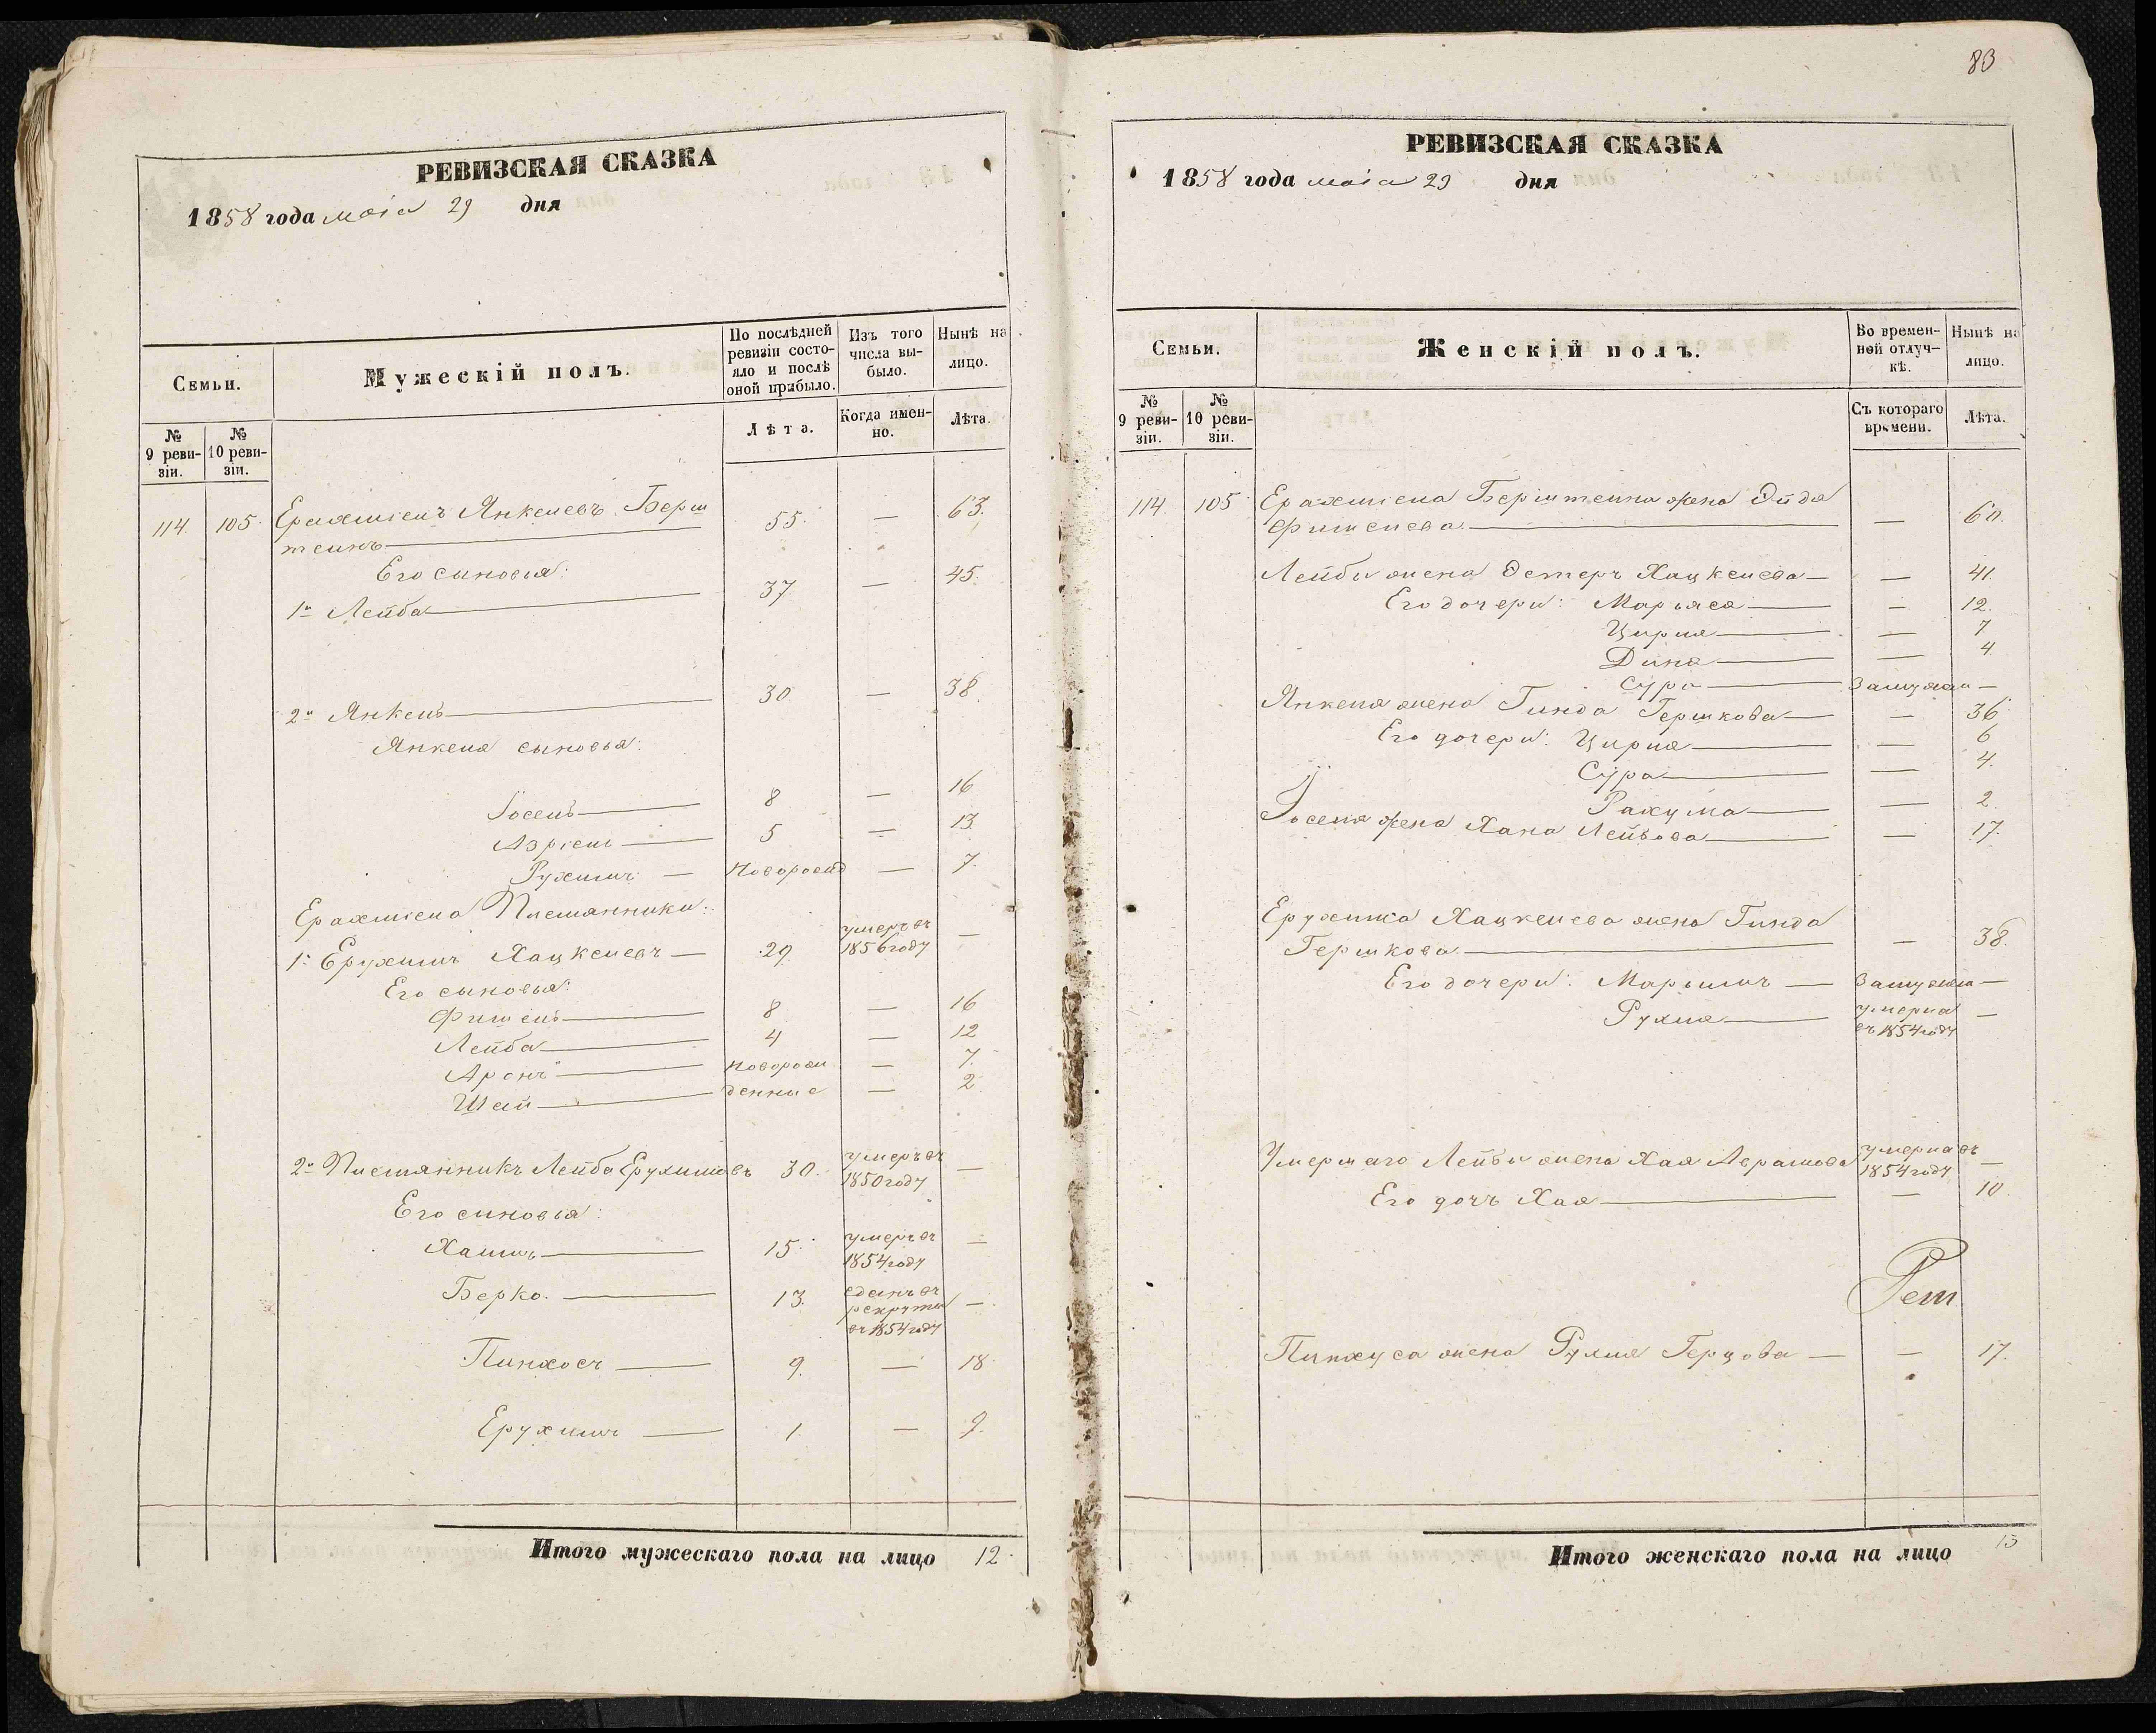 РЕВИЗСКАЯ СКАЗКА
1858 года маія 29 дня
Семьи.
Мужескій полъ.
По послѣдней ревизіи состояло и послѣ оной прибыло.
Изъ того числа выбыло.
Нынѣ на лицо.
№ 9 ревизіи.
№ 10 ревизіи.
Лѣта.
Когда именно.
Лѣта.
114. 105. Ерахміель Янкелевъ Берш
теинъ 55. — 63.
Его сыновья:
1й Лейба 37 — 45.
2й Янкель 30 — 38.
Янкеля сыновья:
Іосель 8 — 16
Азріель 5 — 13
Рухимъ — Новорожд — 7.
Ерахміела Племянники:
1й Ерухимъ Хацкелевъ — 29 умеръ въ 1856 году —
Его сыновья:
Фишель 8 — 16
Лейба 4 — 12
Аронъ Новорож — 7.
Шая денные — 2
2й Племянникъ Лейба Ерухимовъ 30. умеръ въ 1850 году —
Его сыновья:
Хаимъ 15. умеръ въ 1854 году —
Берко. 13. сданъ въ рекруты въ 1854 году —
Пинхосъ 9. — 18
Ерухимъ 1 — 9.
Итого мужескаго пола на лицо 12.
83
РЕВИЗСКАЯ СКАЗКА
1858 года маіа 29 дня
Семьи.
Женскій полъ.
Во временной отлучкѣ.
Нынѣ на лицо.
№ 9 ревизіи.
№ 10 ревизіи.
Съ котораго времени.
Лѣта.
114. 105 Ерахміела Берштеина жена Эйдя
Фишелева — 60.
Лейбы жена Эстеръ Хацкелева — — 41.
Его дочери: Марьяся — 12.
Цирля — 7
Дина — 4
Сура Замужем —
Янкеля жена Гинда Гершкова — — 36
Его дочери: Цирля — 6
Сура — 4.
Рахума — 2.
Іоселя жена Хана Лейбова — 17.
Ерухима Хацкелева жена Гинда
Гершкова — 38.
Его дочери: Марьимъ — Замужем —
Рухля умерла въ 1854 году —
Умершаго Лейбы жена Хая Аврамова умерла въ 1854 году —
Его дочь Хая — 10.
Пинхуса жена Рухля Герцова — — 17.
Итого женскаго пола на лицо 13